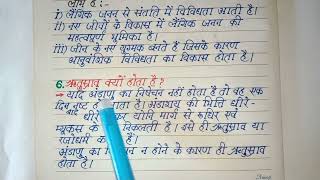 लाभ हैं :-
i) लैंगिक जनन से संतति में विविधता आती है।
ii) नए जीवों के विकास में लैंगिक जनन की
महत्वपूर्ण भूमिका है।
iii) जीन के नए युग्मक बनते हैं जिसके कारण
आनुवंशिक विविधता का विकास होता है।
6. ऋतुस्राव क्यों होता है?
→ यदि अंडाणु का निषेचन नहीं होता है तो वह एक
दिन बाद नष्ट हो जाता है। अंडाशय की भित्ति धीरे-
धीरे कर योनि मार्ग से रूधिर एवं
म्यूकस के निकलती है। इसे ही ऋतुस्राव या
रजोधर्म हैं।
अंडाणु का निषेचन न होने के कारण ही ऋतुस्राव
होता है।